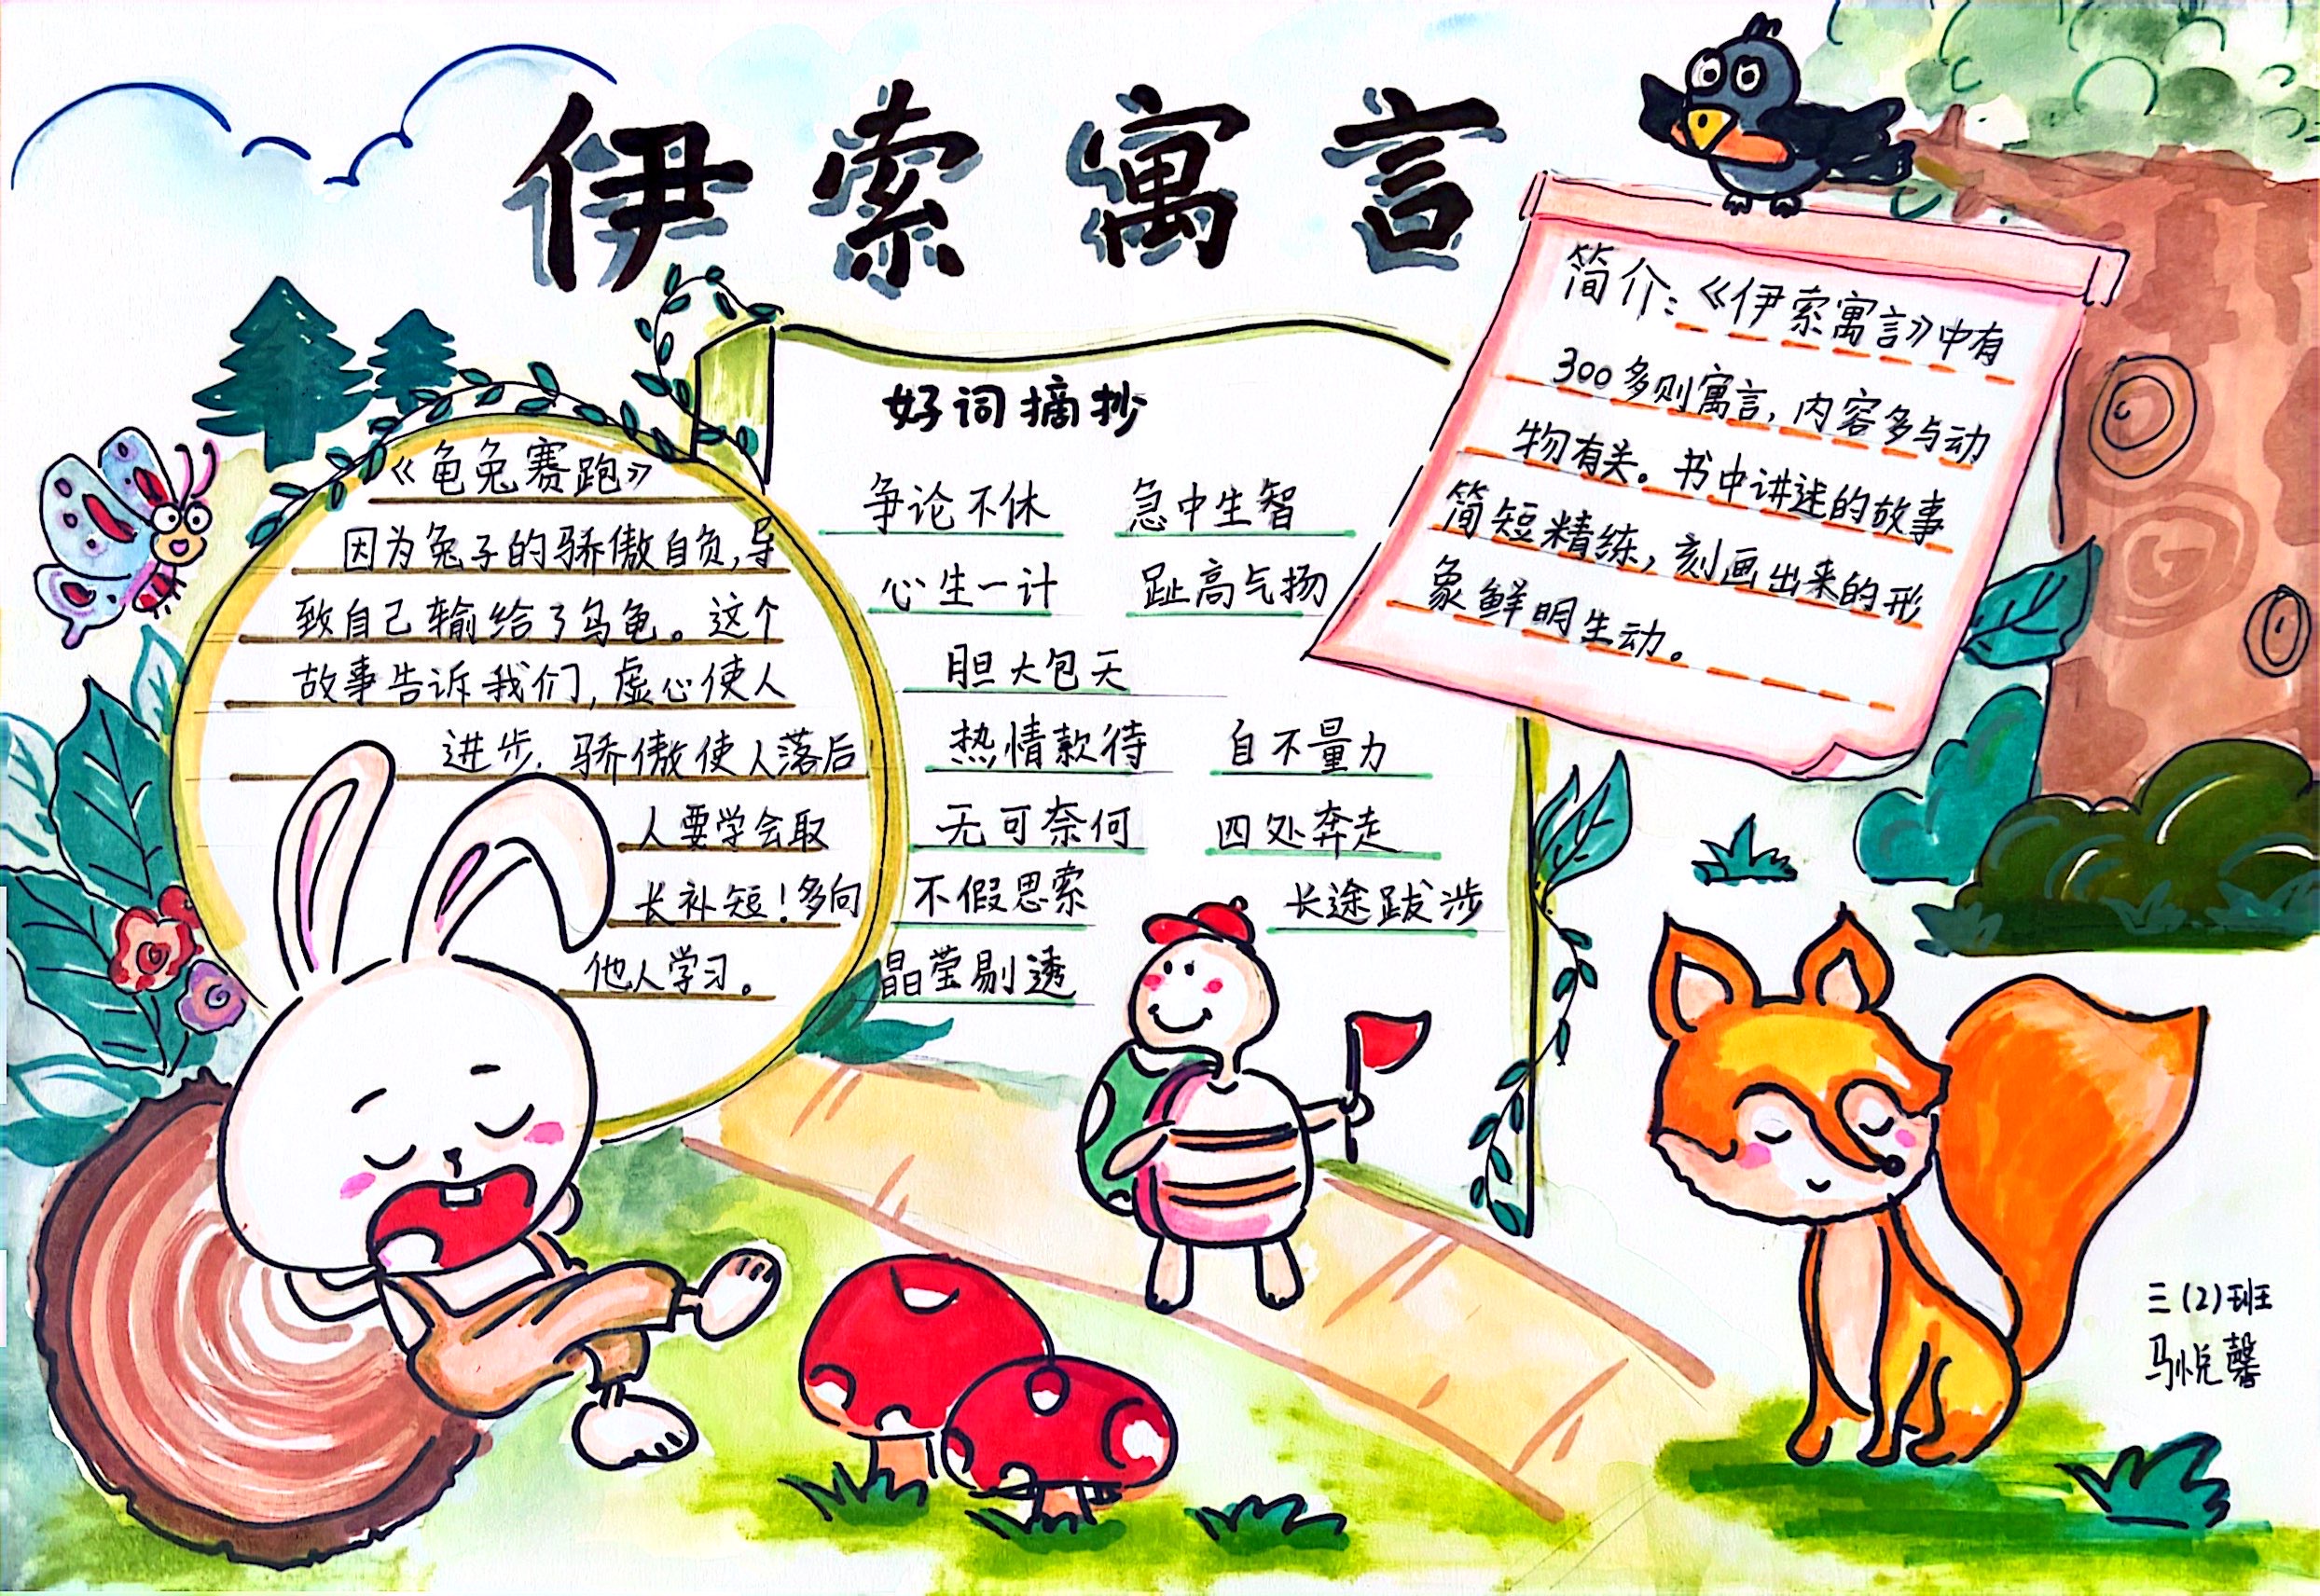 伊索寓言
《龟兔赛跑》
因为兔子的骄傲自负,导
致自己输给了乌龟。这个
故事告诉我们,虚心使人
进步,骄傲使人落后
人要学会取
长补短!多向
他人学习。
好词摘抄
争论不休 急中生智
心生一计 趾高气扬
胆大包天
热情款待 自不量力
无可奈何 四处奔走
不假思索 长途跋涉
晶莹剔透
简介:《伊索寓言》中有
300多则寓言,内容多与动
物有关。书中讲述的故事
简短精练,刻画出来的形
象鲜明生动。
三(2)班
马悦馨